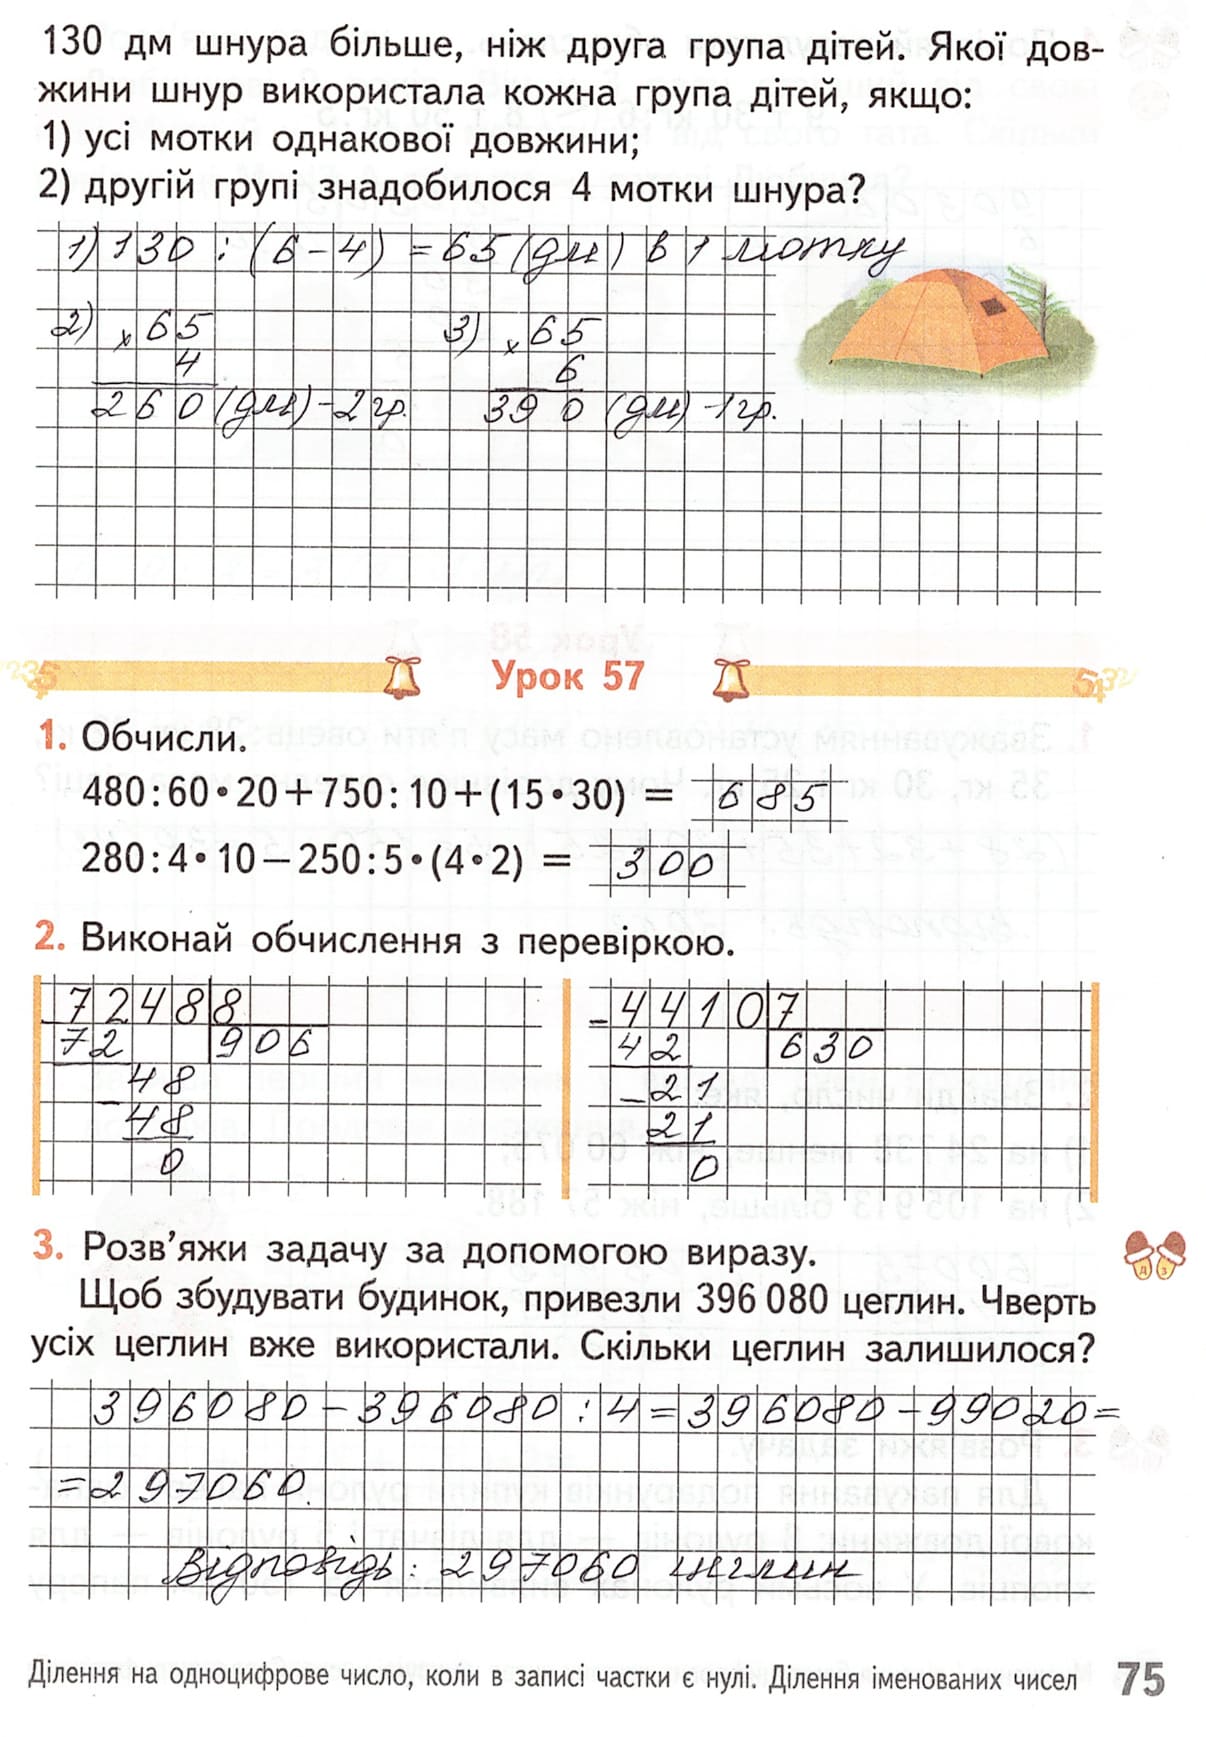 130 дм шнура більше, ніж друга група дітей. Якої дов-
жини шнур використала кожна група дітей, якщо:
1) усі мотки однакової довжини;
2) другій групі знадобилося 4 мотки шнура?
1) 130 : (6 - 4) = 65 (дм) в 1 мотку
2) × 65 3) × 65
4 6
260 (дм) - 2 гр. 390 (дм) - 1 гр.
Урок 57
1. Обчисли.
480 : 60 • 20 + 750 : 10 + (15 • 30) = 685
280 : 4 • 10 – 250 : 5 • (4 • 2) = 300
2. Виконай обчислення з перевіркою.
7248 8 - 4410 7
72 906 42 630
- 48 - 21
48 21
0 0
3. Розв’яжи задачу за допомогою виразу.
Щоб збудувати будинок, привезли 396 080 цеглин. Чверть
усіх цеглин вже використали. Скільки цеглин залишилося?
396080 - 396080 : 4 = 396080 - 99020 =
= 297060.
Відповідь: 297060 цеглин
Ділення на одноцифрове число, коли в записі частки є нулі. Ділення іменованих чисел 75